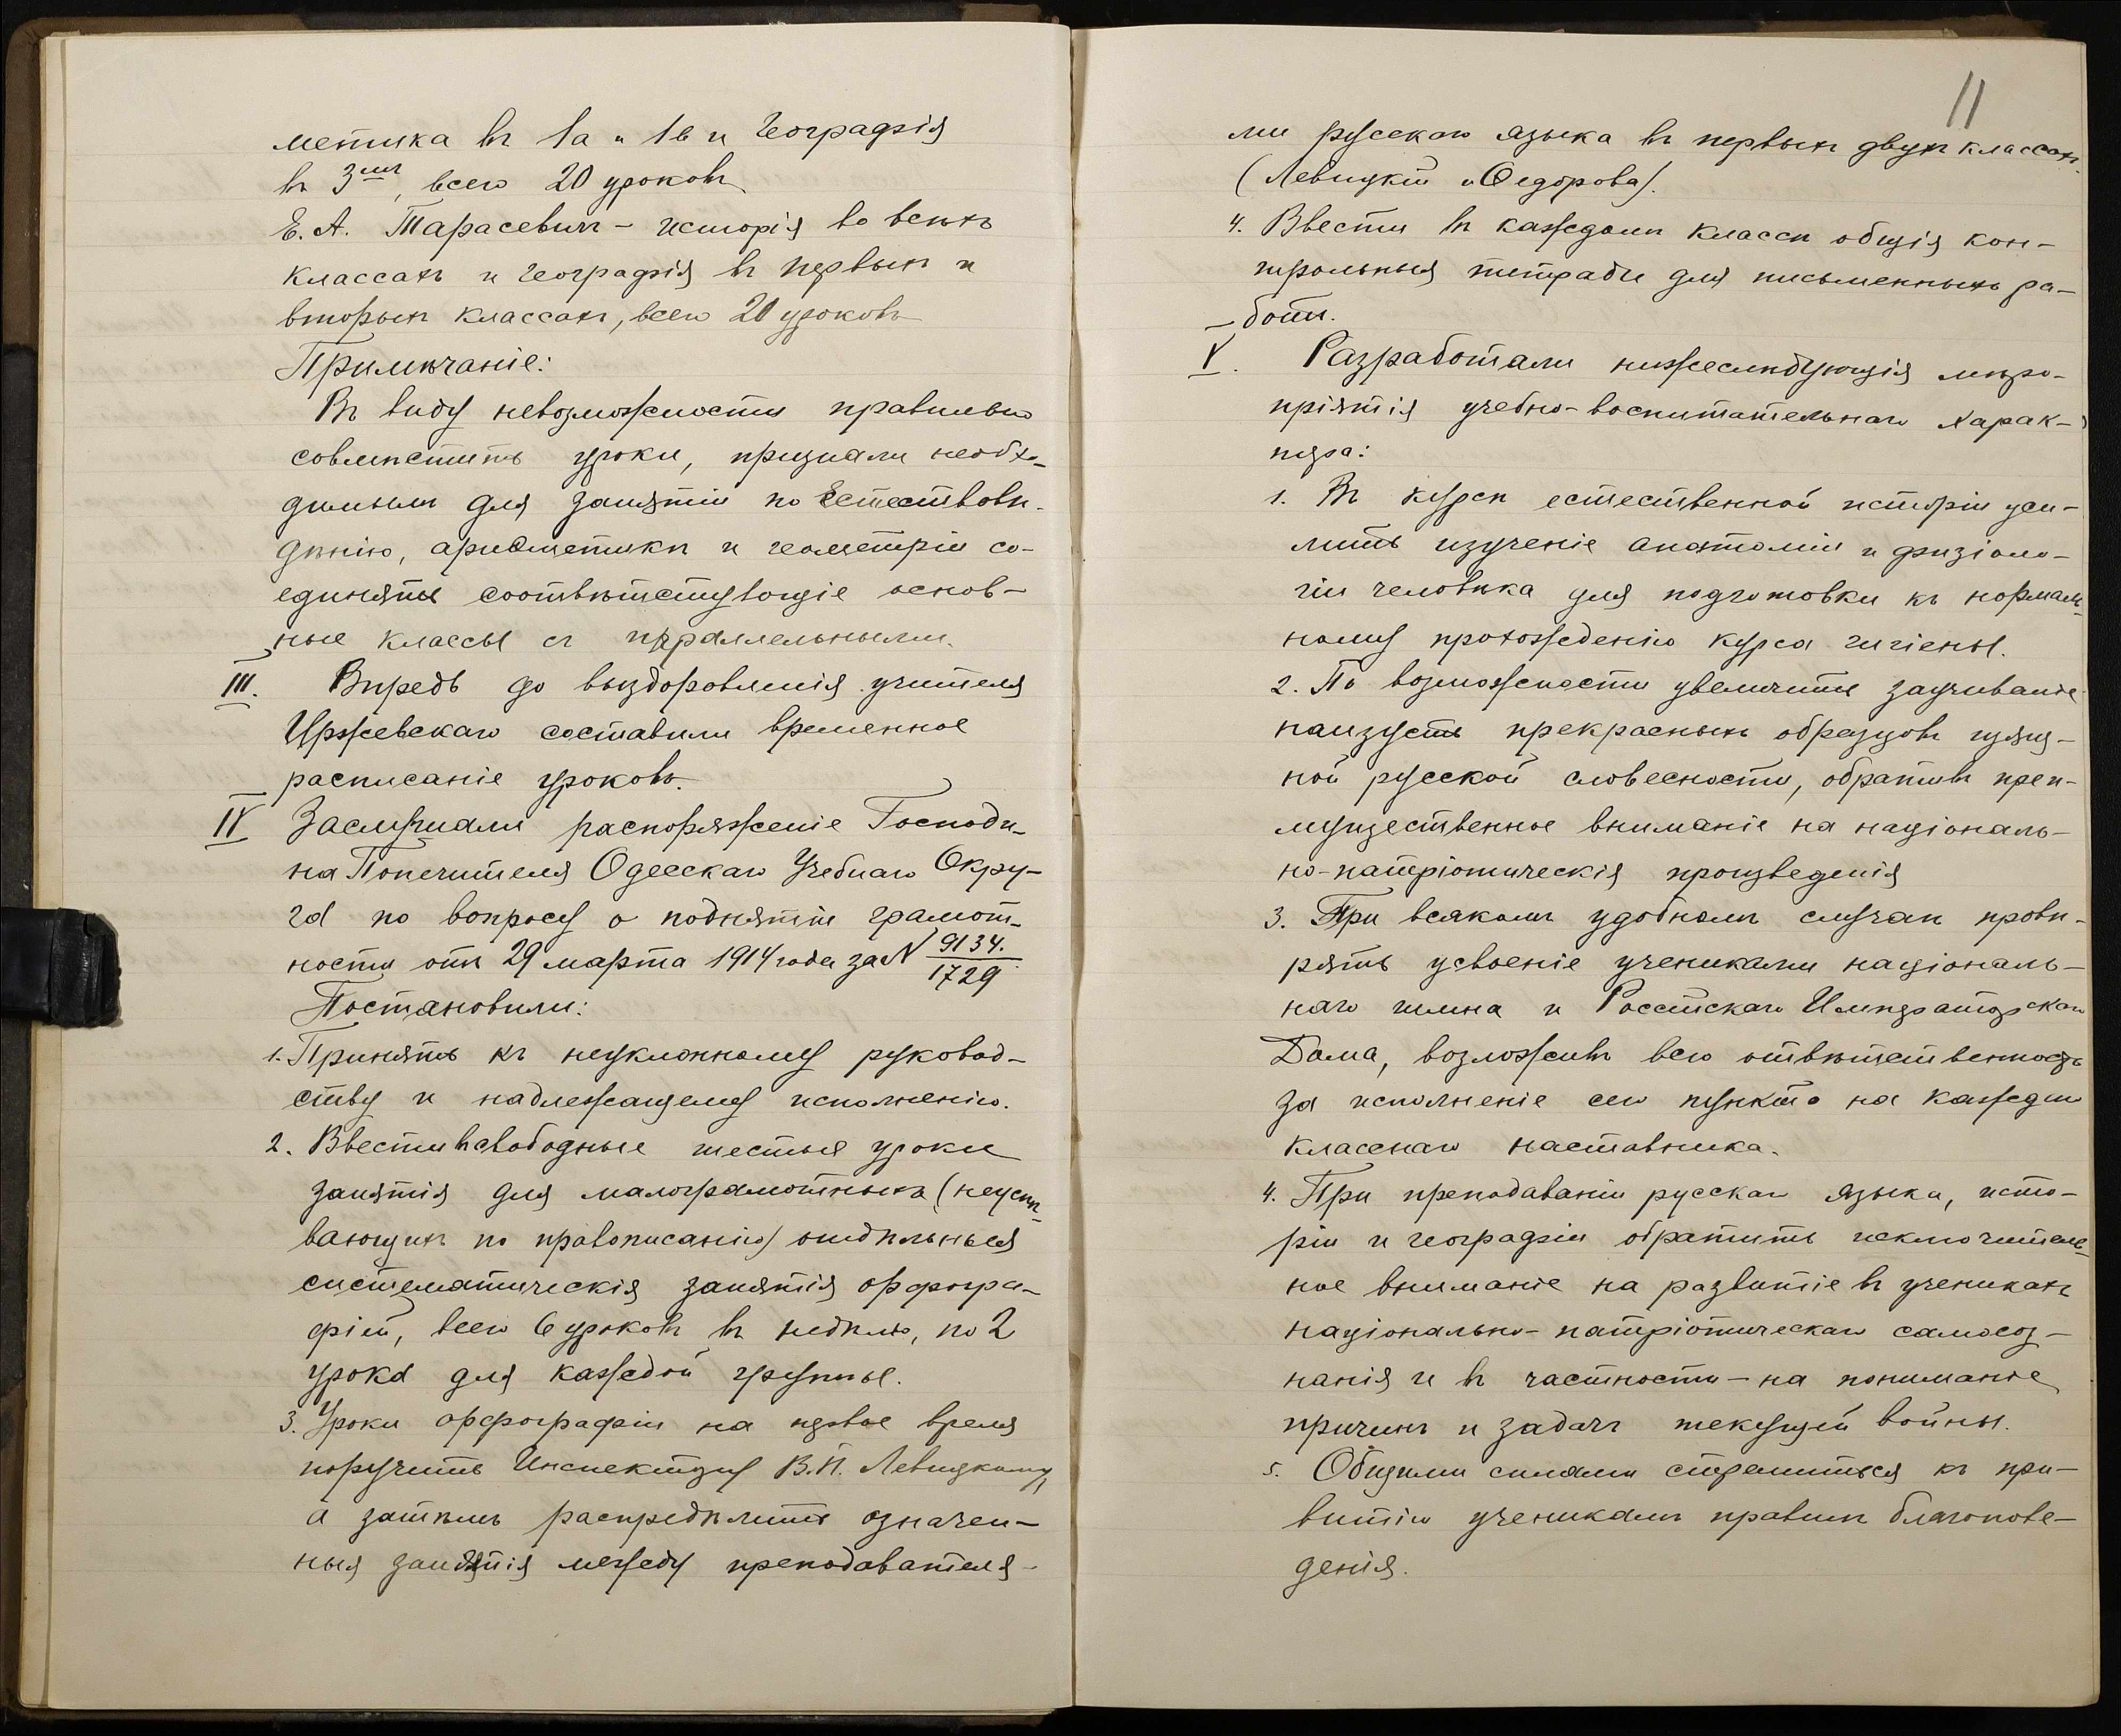 метика въ 1а и 1в и Географія
въ 3емъ, всего 20 уроковъ
Е. А. Тарасевичъ – исторія во всѣхъ
классахъ и географія въ первыхъ и
вторыхъ классахъ, всего 20 уроковъ
Примѣчаніе:
Въ виду невозможности правильно
совмѣстить уроки, признали необхо-
димымъ для занятій по Естествовѣ-
дѣнію, ариѳметикѣ и геометріи со-
единять соотвѣтствующіе основ-
ные классы съ параллельными.
III. Впредь до выздоровленія учителя
Цржевскаго составили временное
расписаніе уроковъ.
IV Заслушали распоряженіе Господи-
на Попечителя Одесскаго Учебнаго Окру-
га по вопросу о поднятіи грамот-
ности отъ 29 марта 1914 года за N 9134./1729
Постановили:
1. Принять къ неуклонному руковод-
ству и надлежащему исполненію.
2. Ввести въ свободные шестые уроки
занятія для малограмотныхъ (неуспѣ-
вающихъ по правописанію) отдѣльныя
систематическія занятія орфогра-
фіей, всего 6 уроковъ въ недѣлю, по 2
урока для каждой группы.
3. Уроки орфографіи на первое время
поручить Инспектору В.П. Левицкому,
а затѣмъ распредѣлить означен-
ныя занятія между преподавателя-
11
ми русскаго языка въ первыхъ двухъ классахъ.
(Левицкій и Ѳедорова).
4. Ввести въ каждомъ классѣ общія кон-
трольныя тетради для письменныхъ ра-
ботъ.
V. Разработали нижеслѣдующія мѣро-
пріятія учебно-воспитательнаго харак-
тера:
1. Въ курсѣ естественной исторіи уси-
лить изученіе анатоміи и физіоло-
гіи человѣка для подготовки къ нормаль-
ному прохожденію курса гигіены.
2. По возможности увеличить заучиваніе
наизусть прекрасныхъ образцовъ изящ-
ной русской словесности, обративъ преи-
мущественное вниманіе на націоналъ-
но-патріотическія произведенія
3. При всякомъ удобномъ случаѣ провѣ-
рять усвоеніе учениками націоналъ-
наго гимна и Россійскаго Императорскаго
Дома, возложивъ всю отвѣтственность
за исполненіе сего пункта на каждаго
класснаго наставника.
4. При преподаваніи русскаго языка, исто-
ріи и географіи обратить исключитель-
ное вниманіе на развитіе въ ученикахъ
національно-патріотическаго самосоз-
нанія и въ частности – на пониманіе
причинъ и задачъ текущей войны.
5. Общими силами стремиться къ при-
витію ученикамъ правилъ благопове-
денія.